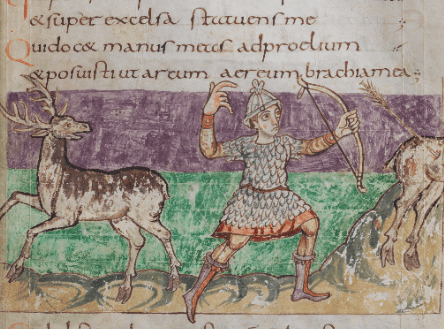 &super excelsa statuens me
Quidoc& manus meas adproelium
&posuisti ut arcum aereum brachiamea